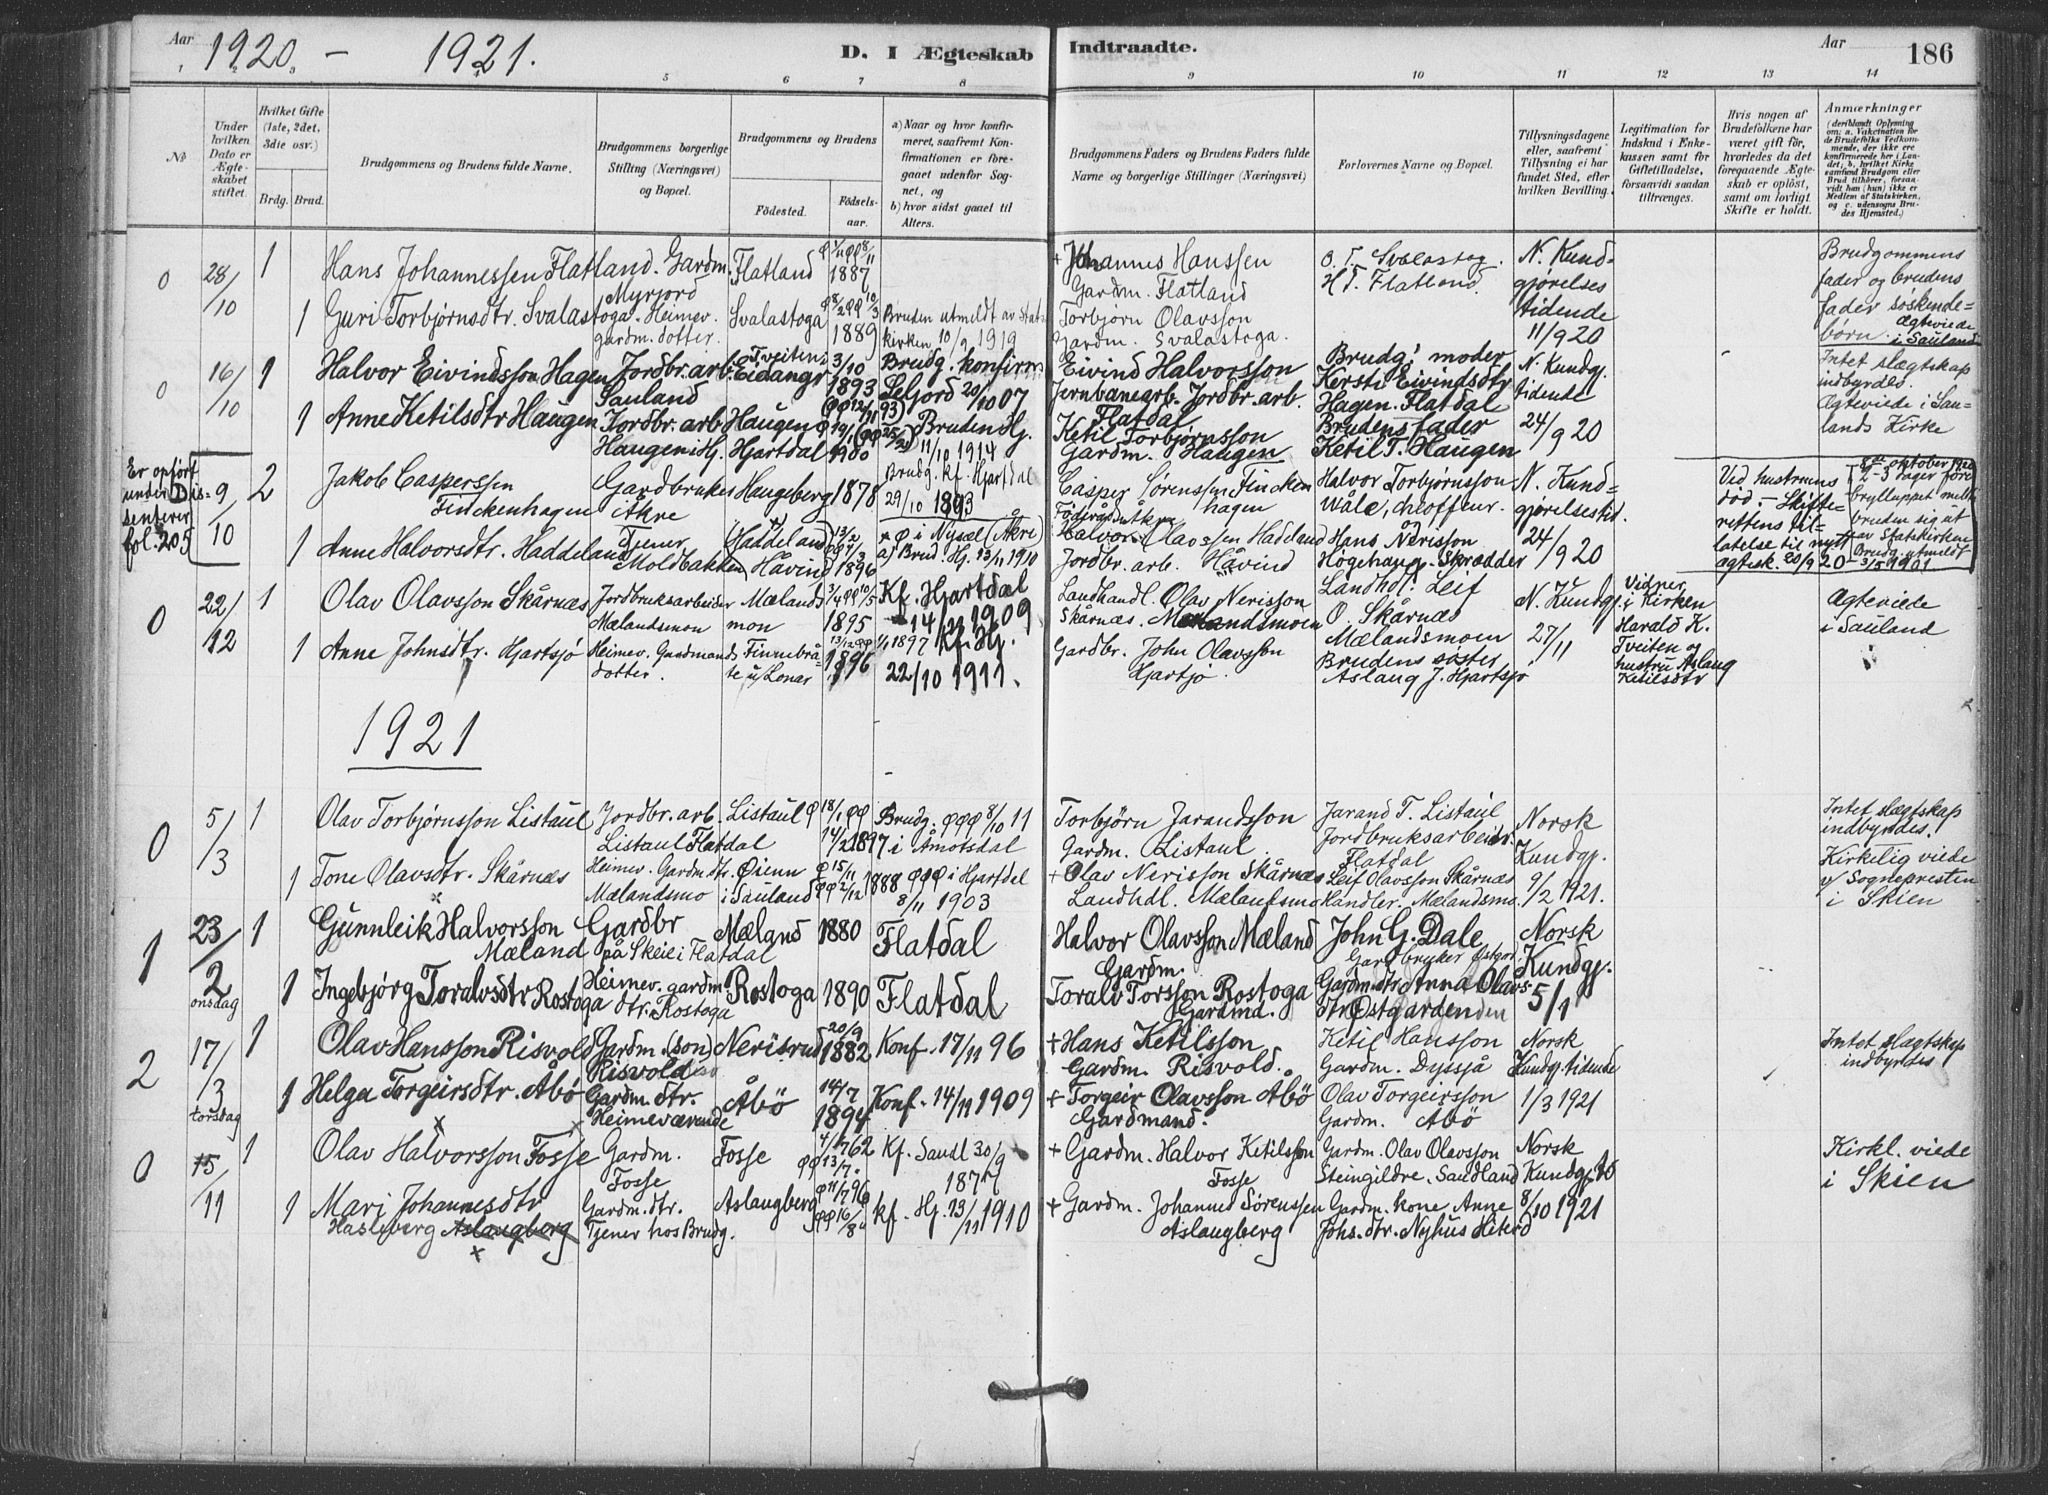 Aar 1920 – 1921. D. I Ægteskab Indtraadte. Aar 186
1 2 3 4 5 6 7 8 9 10 11 12 13 14
No
Under hvilken Dato er Ægteskabet stiftet.
Hvilket Gifte (1ste, 2det, 3die osv.)
Brdg. Brud.
Brudgommens og Brudens fulde Navne.
Brudgommens borgerlige Stilling (Næringsvei) og Bopæl.
Brudgommens og Brudens
Fødested. Fødselsaar.
a) Naar og hvor konfirmeret, saafremt Konfirmationen er foregaaet udenfor Sognet, og
b) hvor sidst gaaet til Alters.
Brudgommens Faders og Brudens Faders fulde Navne og borgerlige Stillinger (Næringsvei)
Forlovernes Navne og Bopæl.
Tillysningsdagene eller, saafremt Tillysning ei har fundet Sted, efter hvilken Bevilling.
Legitimation for Indskud i Enkekassen samt for Giftetilladelse, forsaavidt saadan tiltrænges.
Hvis nogen af Brudefolkene har været gift før, hvorledes da det foregaaende Ægteskab er opløst, samt om lovligt Skifte er holdt.
Anmærkninger (deriblandt Oplysning om: a. Vakcination for de Brudefolks Vedkommende, der ikke ere konfirmerede her i Landet; b. hvilket Kirkesamfund Brudgom eller Brud tilhører, forsaavidt han (hun) ikke er Medlem af Statskirken, og c. udensogns Brudes Hjemsted.)
0 28/10 1 Hans Johannessen Flatland. Gardm. Myrjord Flatland 1887
+ Johannes Hanssen Gardm. Flatland
O. T. Svalastog. H. T. Flatland.
N. Kundgjørelses tidende 11/9 20
Brudgommens fader og brudens fader søskendebørn. Ægteviede i Sauland
1 Guri Torbjørnsdtr. Svalastoga. Heimev. gardm. dotter. Svalastoga 1889
Bruden utmeldt av Statkirken 10/9 1919
Torbjørn Olavsson Gardm. Svalastoga.
0 16/10 1 Halvor Eivindsson Hagen Jordbr. arb. Sauland Tveiten i Eidanger 3/10 1893
Brudg. konfirm. Seljord 20/10 07
Eivind Halvorsson Jernbanearb. Jordbr. arb. Flatdal
Brudg. moder Kersti Eivindsdtr Hagen. Flatdal
N. Kundgj. tidende 24/9 20
Intet slægtskap indbyrdes. Ægteviede i Saulands Kirke
1 Anne Ketilsdtr Haugen Jordbr. arb. Haugen i Hj. Haugen Hjartdal 19/1 1900
Bruden Hj. 11/10 1914
Ketil Torbjørnsson Gardm. Haugen
Brudens fader Ketil T. Haugen
Er opført under Dissenterer fol. 205
9/10 2 Jakob Caspersen Finckenhagen Gardbruker Åkre Haugeberg 1878
Brudg. kf. Hjartdal 29/10 1893
Casper Sørenssen Finckenhagen
Halvor Torbjørnsson Wåle, chloffeur.
N. Kundgjørelsestid. 24/9 20
Ved hustruens død. – Skifterettens tillatelse til nytt ægtesk. 20/9 20
8de oktober 1920 2-3 dager före brylluppet meldte bruden sig ut av Statskirken Brudg. utmeldt 3/5 1901
1 Anne Halvorsdtr. Haddeland Tjener Moldbakken (Haddeland Håvind) 1896
a) Brud. Hj. 13/11 1910
Halvor Olavssen Hadeland Jordbr. arb. Håvind
Hans Nerisson Högehaug – Skrædder
0 22/12 1 Olav Olavsson Skårnæs Jordbruksarbeider Mælandsmon Mælandsmon 1895
Kf. Hjartdal 14/11 1909
Landhandl. Olav Nerisson Skårnæs. Mælandsmoen
Landhdl. Leif O. Skårnæs Mælandsmoen
N. Kundgj. 27/11
Vidner i Kirken Harald K. Tveiten og hustru Aslaug Ketilsdtr
Ægteviede i Sauland
1 Anne Johnsdtr. Hjartsjø Heimev. Gardmands dotter. Finnebråte u/ Lonar 1896
1/1 1897 Kf. Hj. 22/10 1911.
Gardbr. John Olavsson Hjartjø.
Brudens søster Aslaug J. Hjartsjø
1921
0 5/3 1 Olav Torbjørnsson Listaul Jordbr. arb. Listaul Flatdal Listaul 18/1 14/2 1897
Brudg. 8/10 11 i Åmotsdal
Torbjörn Jarandsson Gardm. Listaul.
Jarand T. Listaul Jordbruksarbeidr. Flatdal
Norsk Kundgj. 9/2 1921.
Intet slægtskap indbyrdes. Kirkelig viede v/ Sognepresten i Skien
1 Tone Olavsdtr. Skårnæs Heimev. Gardm. dtr. Mælandsmo Øienn i Sauland 15/11 2/12 1888
i Hjartdel 8/11 1903
+ Olav Nerisson Skårnæs Landhdl. Mælandsmo
Leif Olavsson Skårnæs Handler. Mælandsmo.
1 23/2 onsdag 1 Gunnleik Halvorsson Mæland Gardbr på Skeie i Flatdal Mæland 1880 Flatdal
Halvor Olavsson Mæland Gardm.
John G. Dale Gardbryker Østgard.
Norsk Kundgj. 5/1
1 Ingebjørg Toralvsdtr Rostoga Heimev. gardm. dtr. Rostoga Rostoga 1890 Flatdal
Toralv Torsson Rostoga Gardmd.
Gardm. dtr Anna Olavsdtr Østgarden
2 17/3 torsdag 1 Olav Hansson Risvold Gardm. (son) Risvold Nerisrud 20/9 1882 Konf. 17/11 96
+ Hans Ketilsson Gardm. Risvold.
Ketil Hansson Gardm. Dyssjå
Norsk Kundgj. tidende 1/3 1921
Intet slægtskap indbyrdes
1 Helga Torgeirsdtr. Åbø Gardm. dtr. Heimeværende Åbö 14/7 1894 Konf. 14/11 1909
+ Torgeir Olavsson Åbö Gardmand.
Olav Torgeirsson Gardm. Åbö
0 15/11 1 Olav Halvorsson Fosse Gardm. Fosse Fosse 4/1 62 13/7. Kf. Saudl 30/9 1877
+ Gardm. Halvor Ketilsson Fosse
Gardm. Olav Olavsson Steingildre, Saudland
Norsk Kundgj. 8/10 1921
Kirkl. viede i Skien
1 Mari Johannesdtr Hasleberg Aslaugberg Gardm. dtr. Tjener hos Brudg. Aslaugberg 11/7 96 16/8 kf. Hj. 13/11 1910
+ Gardm. Johannes Sörenssen Aslaugberg
Gardm. kone Anne Johs. dtr. Nyhus Hiterd